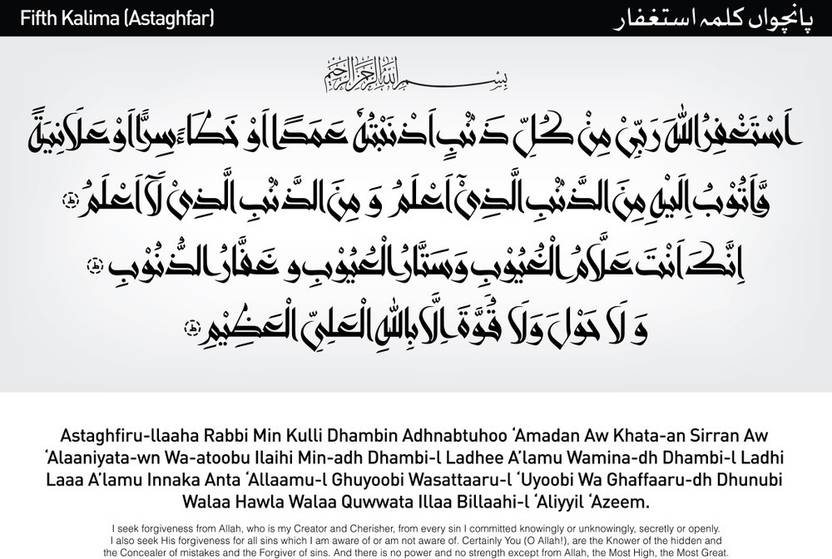 Fifth Kalima (Astaghfar)
پانچواں کلمہ استغفار
بِسْمِ اللهِ الرَّحْمٰنِ الرَّحِيْمِ
اَسْتَغْفِرُ اللهَ رَبِّیْ مِنْ كُلِّ ذَنْۢبٍ اَذْنَبْتُهٗ عَمَدًا اَوْ خَطَاءً سِرًّا اَوْ عَلَانِيَةً
وَّاَتُوْبُ اِلَيْهِ مِنَ الذَّنْۢبِ الَّذِیْٓ اَعْلَمُ وَ مِنَ الذَّنْۢبِ الَّذِیْ لَآ اَعْلَمُ ؕ
اِنَّكَ اَنْتَ عَلَّامُ الْغُيُوْبِ وَسَتَّارُ الْعُيُوْبِ و غَفَّارُ الذُّنُوْبِ ؕ
وَ لَا حَوْلَ وَلَا قُوَّةَ اِلَّا بِاللهِ الْعَلِیِّ الْعَظِيْمِ ؕ
Astaghfiru-llaaha Rabbi Min Kulli Dhambin Adhnabtuhoo ‘Amadan Aw Khata-an Sirran Aw
‘Alaaniyata-wn Wa-atoobu Ilaihi Min-adh Dhambi-l Ladhee A’lamu Wamina-dh Dhambi-l Ladhi
Laaa A’lamu Innaka Anta ‘Allaamu-l Ghuyoobi Wasattaaru-l ‘Uyoobi Wa Ghaffaaru-dh Dhunubi
Walaa Hawla Walaa Quwwata Illaa Billaahi-l ‘Aliyyil ‘Azeem.
I seek forgiveness from Allah, who is my Creator and Cherisher, from every sin I committed knowingly or unknowingly, secretly or openly.
I also seek His forgiveness for all sins which I am aware of or am not aware of. Certainly You (O Allah!), are the Knower of the hidden and
the Concealer of mistakes and the Forgiver of sins. And there is no power and no strength except from Allah, the Most High, the Most Great.